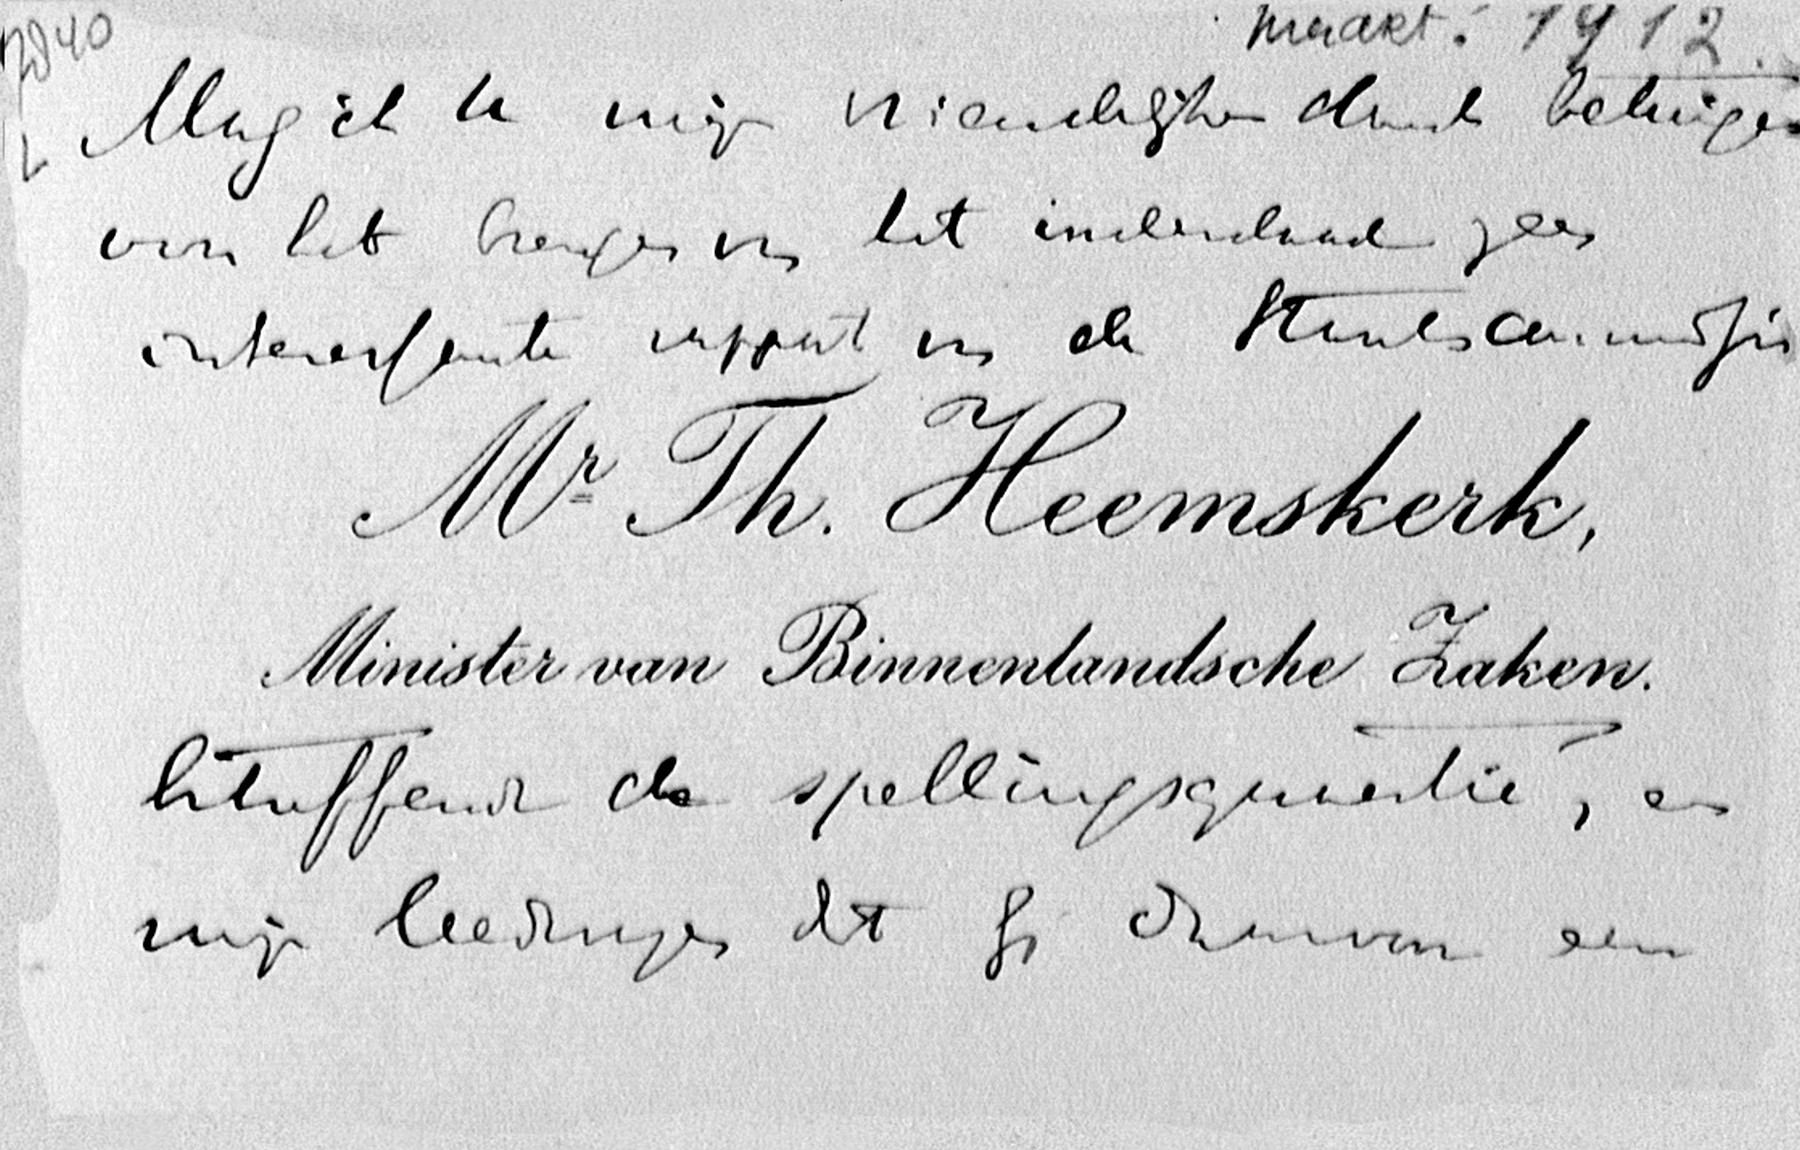 2840
maart. 1912.
Mag ik U mijn vriendelijken dank betuigen
voor het van het inderdaad zeer
interessante rapport van de Staatscommissie
Mr Th. Heemskerk,
Minister van Binnenlandsche Zaken.
betreffend de spellingsquaestie, en
mij dat daarvan een